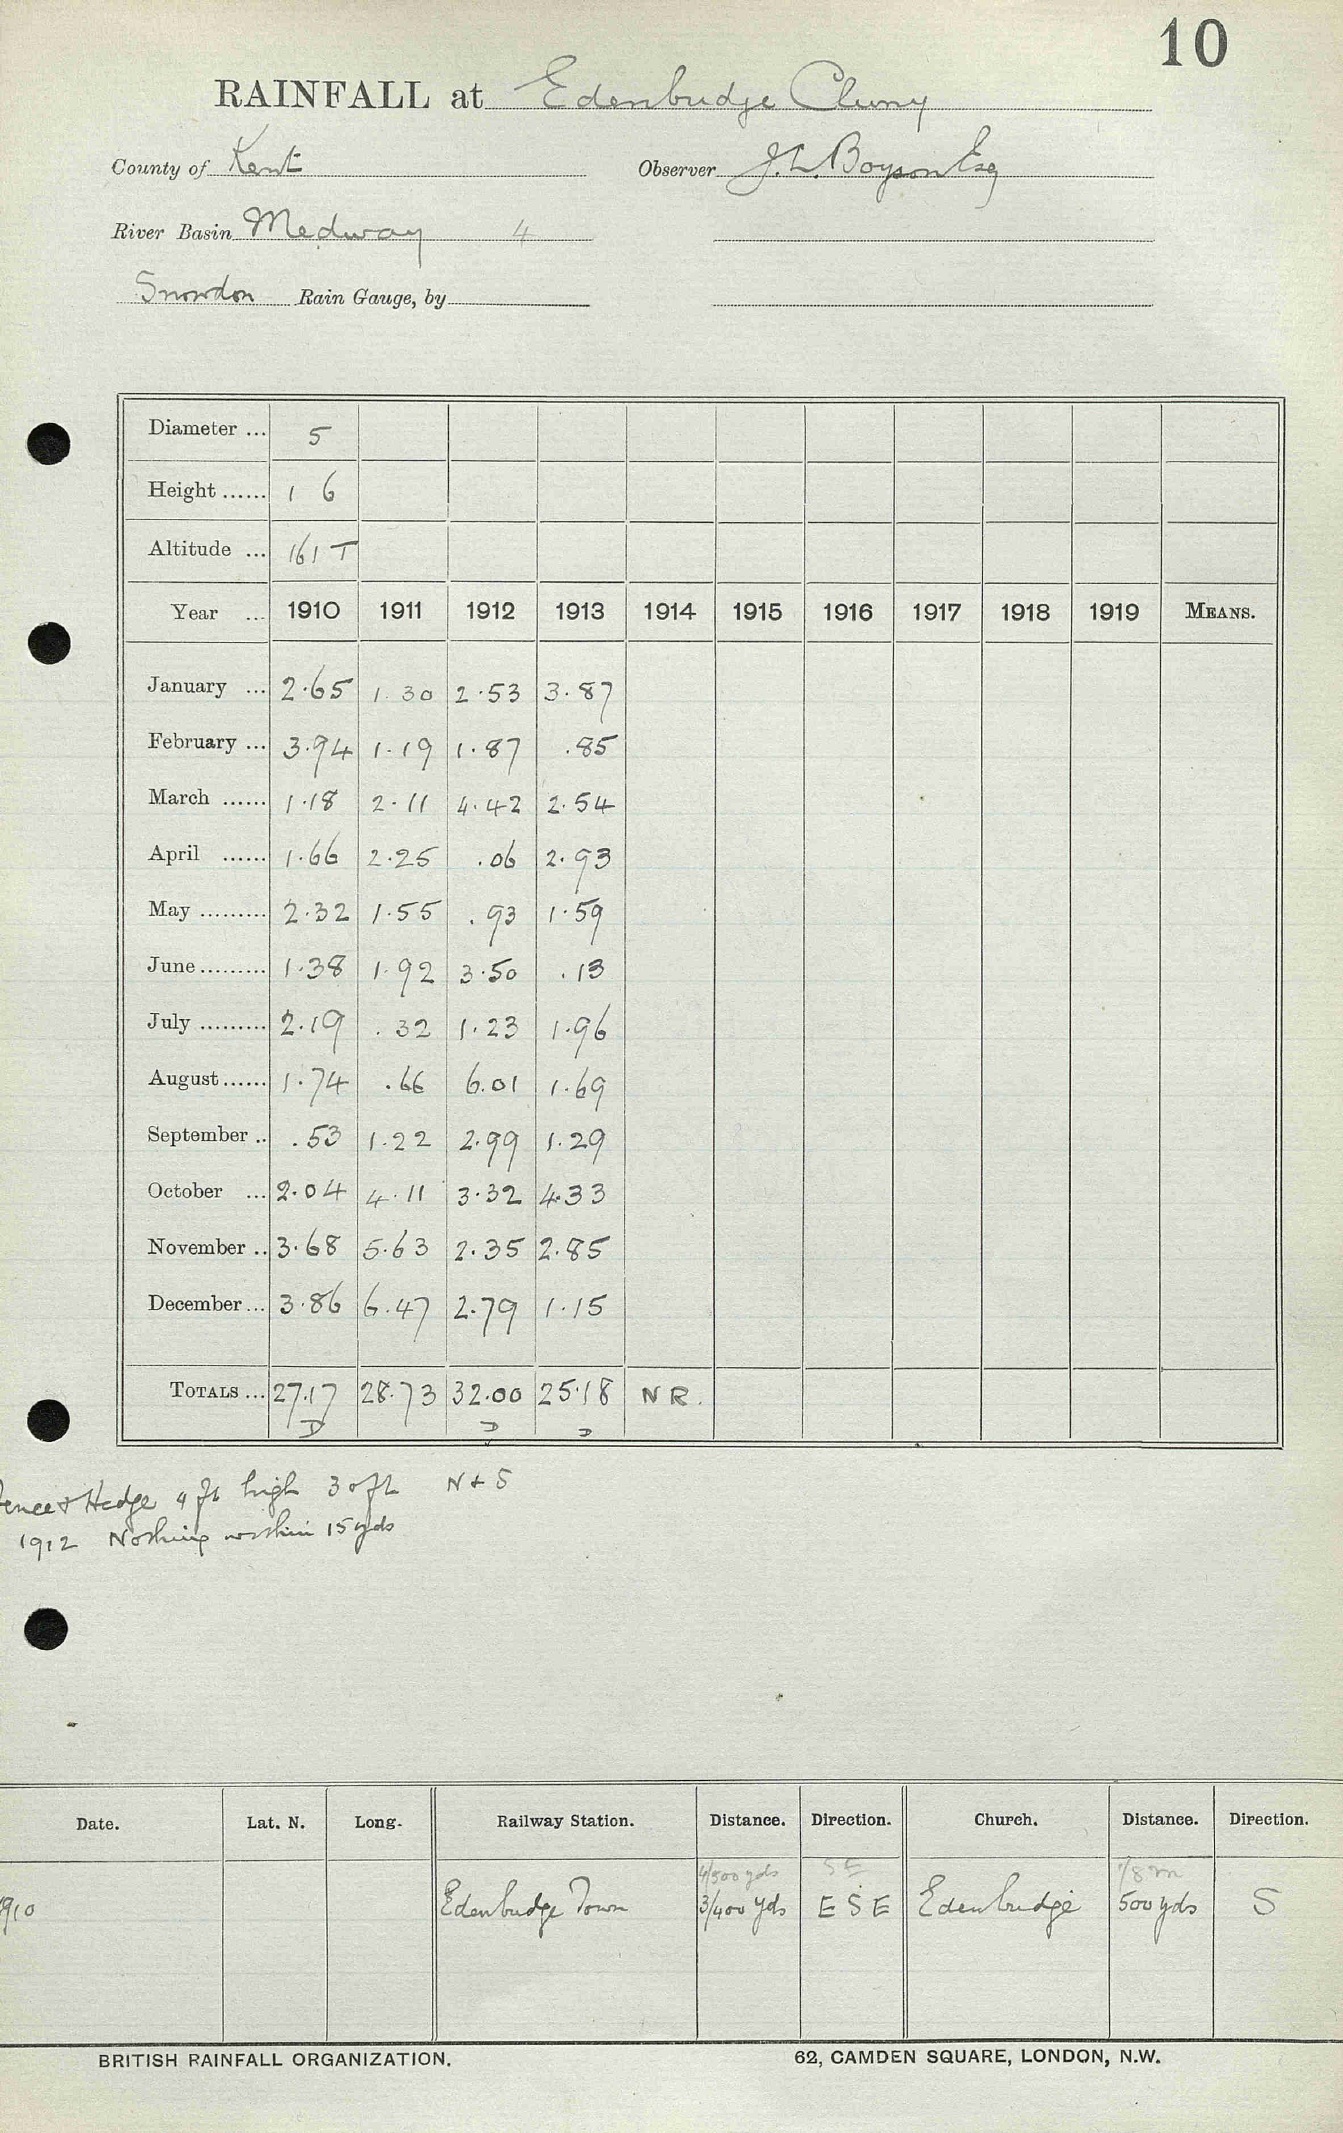 10
RAINFALL at Edenbridge Cluny
County of Kent Observer J. L. Boyson Esq
River Basin Medway 4
Snowdon Rain Gauge, by
Diameter ... 5
Height ...... 1 6
Altitude ... 161 T
Year ... 1910 1911 1912 1913 1914 1915 1916 1917 1918 1919 MEANS.
January ... 2.65 1.30 2.53 3.87
February ... 3.94 1.19 1.87 .85
March ...... 1.18 2.11 4.42 2.54
April ...... 1.66 2.25 .06 2.93
May ......... 2.32 1.55 .93 1.59
June ......... 1.38 1.92 3.50 .13
July ......... 2.19 .32 1.23 1.96
August ...... 1.74 .66 6.01 1.69
September .. .53 1.22 2.99 1.29
October ... 2.04 4.11 3.32 4.33
November .. 3.68 5.63 2.35 2.85
December ... 3.86 6.47 2.79 1.15
TOTALS ... 27.17 28.73 32.00 25.18 NR.
D D D
ence & Hedge 4 ft high 30 ft N + S
1912 Nothing within 15 yds
Date. Lat. N. Long. Railway Station. Distance. Direction. Church. Distance. Direction.
4/500 yds SE 7/8 m
910 Edenbridge Town 3/400 yds ESE Edenbridge 500 yds S
BRITISH RAINFALL ORGANIZATION. 62, CAMDEN SQUARE, LONDON, N.W.